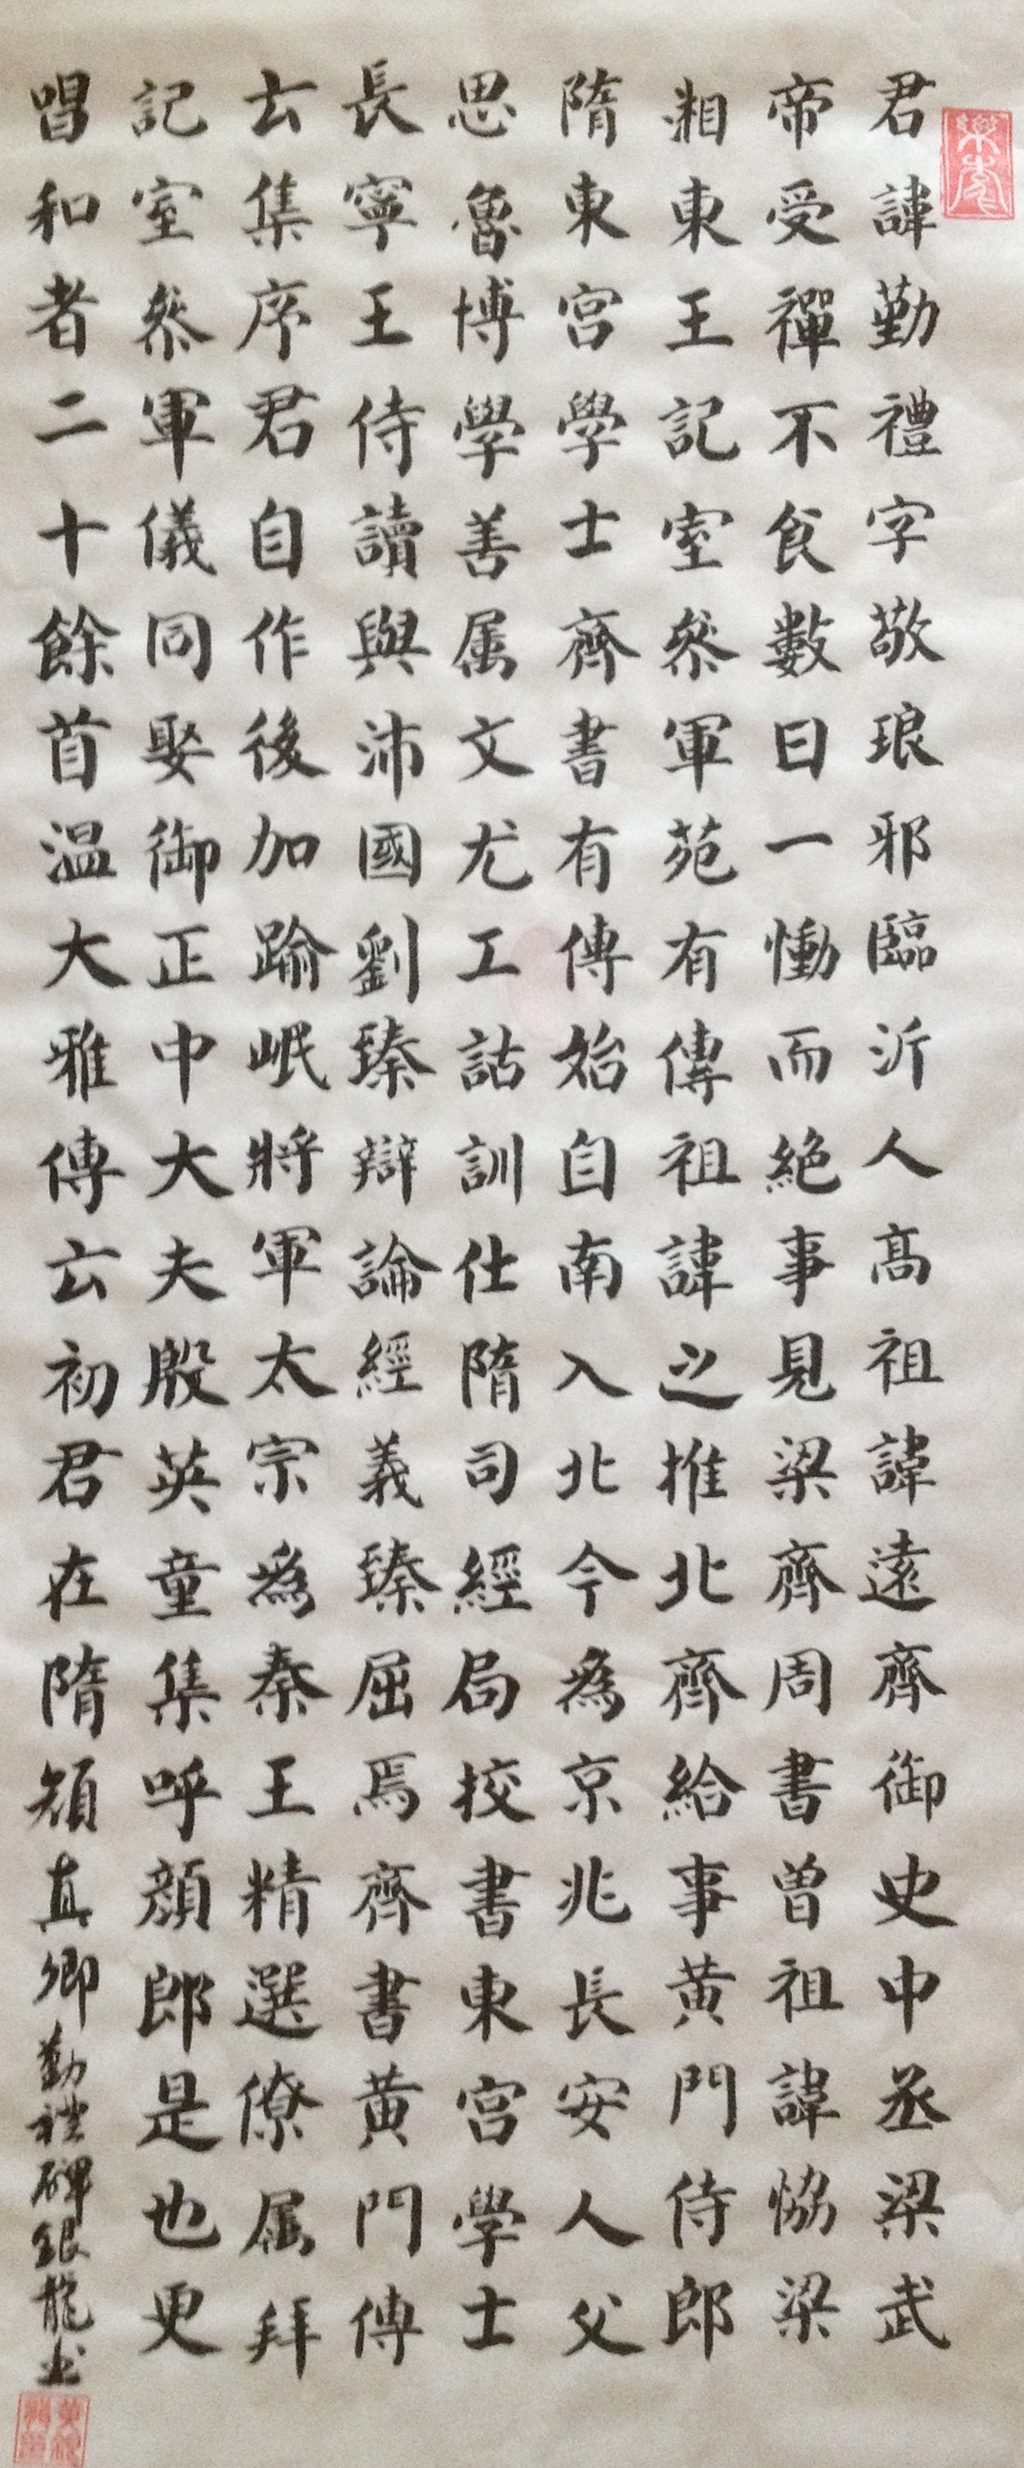 君諱勤禮字敬琅邪臨沂人髙祖諱遠齊御史中丞梁武
帝受禪不食數日一慟而絶事見梁齊周書曽祖諱恊梁
湘東王記室叅軍苑有傳祖諱之推北齊給事黄門侍郎
隋東宫學士齊書有傳始自南入北今為京兆長安人父
思魯博學善属文尤工詁訓仕隋司經局挍書東宫學士
長寧王侍讀與沛國劉臻辯論經義臻屈焉齊書黄門傳
云集序君自作後加踰岷將軍太宗為秦王精選僚属拜
記室叅軍儀同娶御正中大夫殷英童集呼顔郎是也更
唱和者二十餘首温大雅傳云初君在隋顔真卿勤禮碑銀龍书